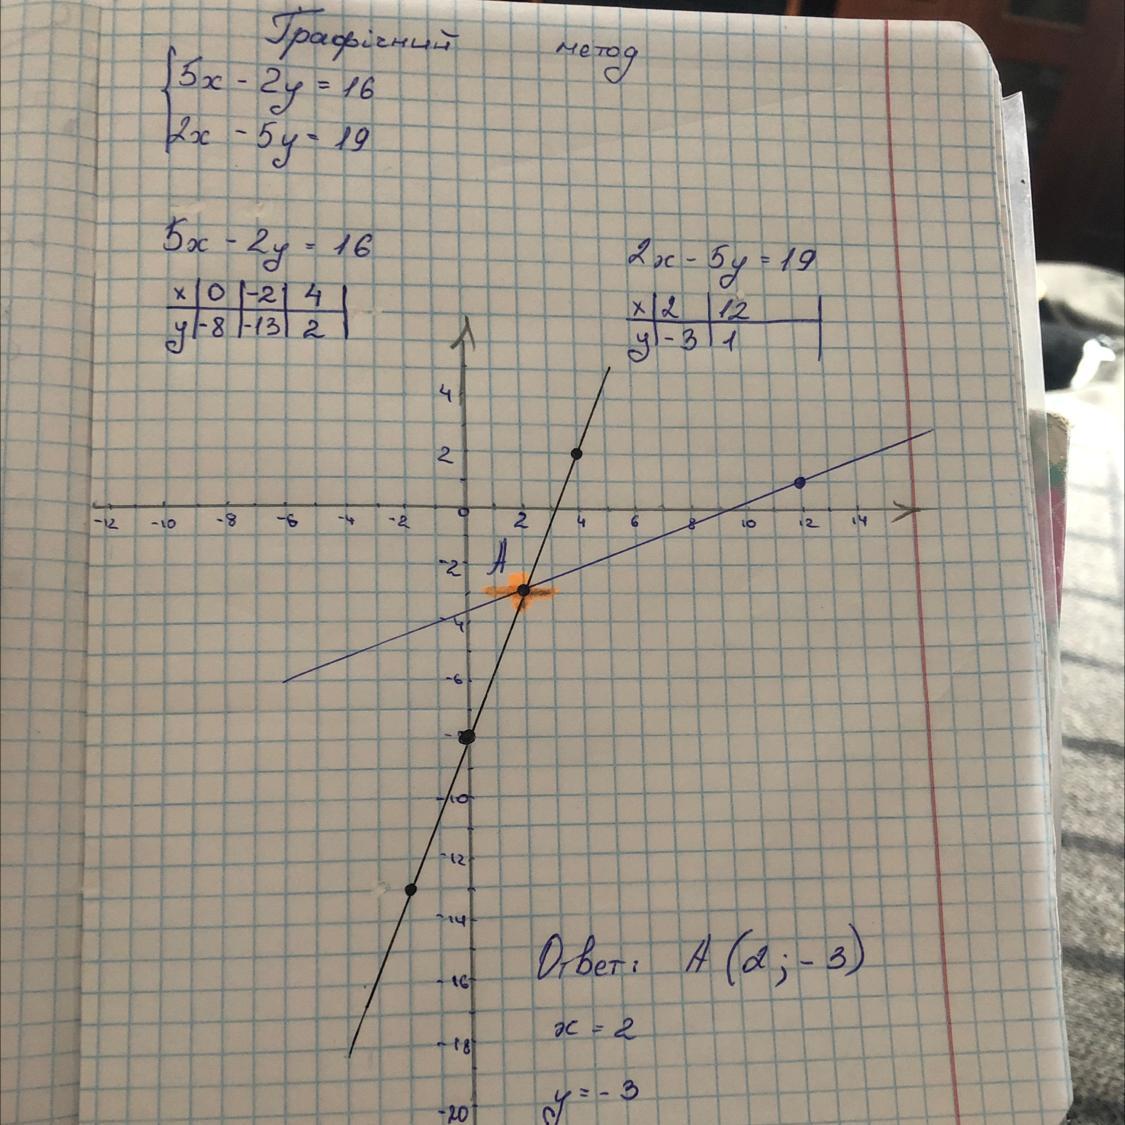 Графічний метод
5x - 2y = 16
2x - 5y = 19
5x - 2y = 16
x 0 -2 4
y -8 -13 2
2x - 5y = 19
x 2 12
y -3 1
4
2
-12 -10 -8 -6 -4 -2 0 2 4 6 8 10 12 14
A
-2
-4
-6
-8
-10
-12
-14
-16
-18
-20
Ответ: A (2; -3)
x = 2
y = -3